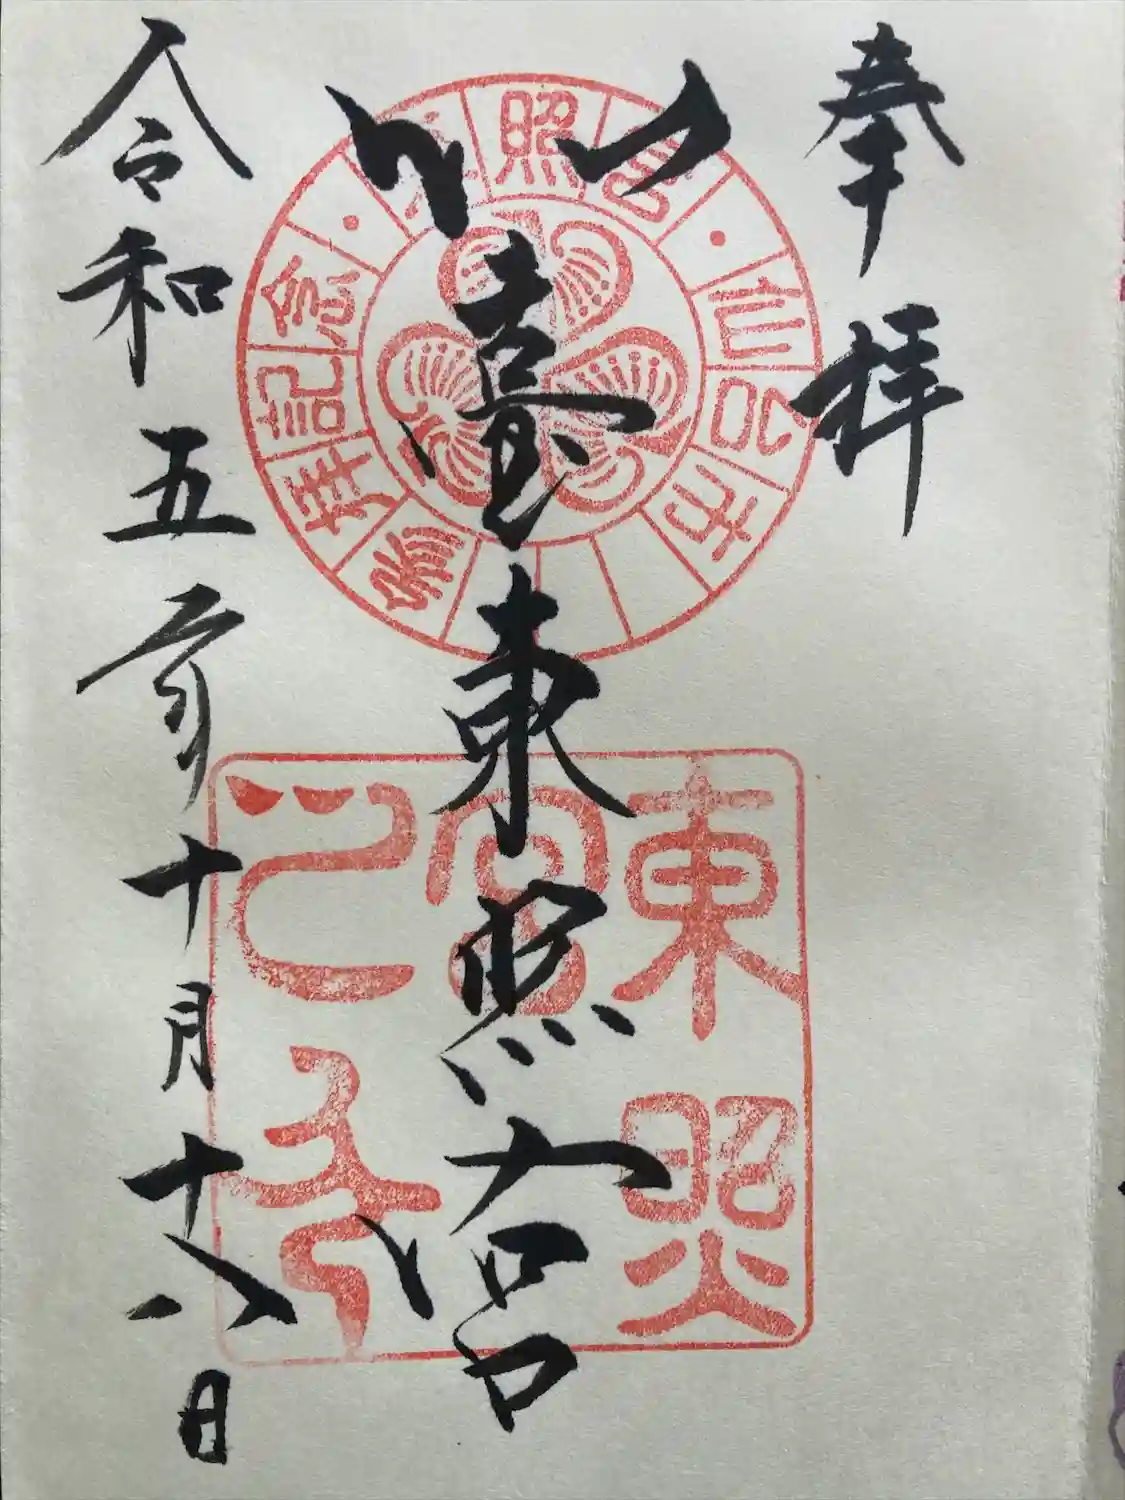 奉拝
仙臺東照宮
令和五年十月十八日
參拝記念・東照宮・仙台市
東照宮